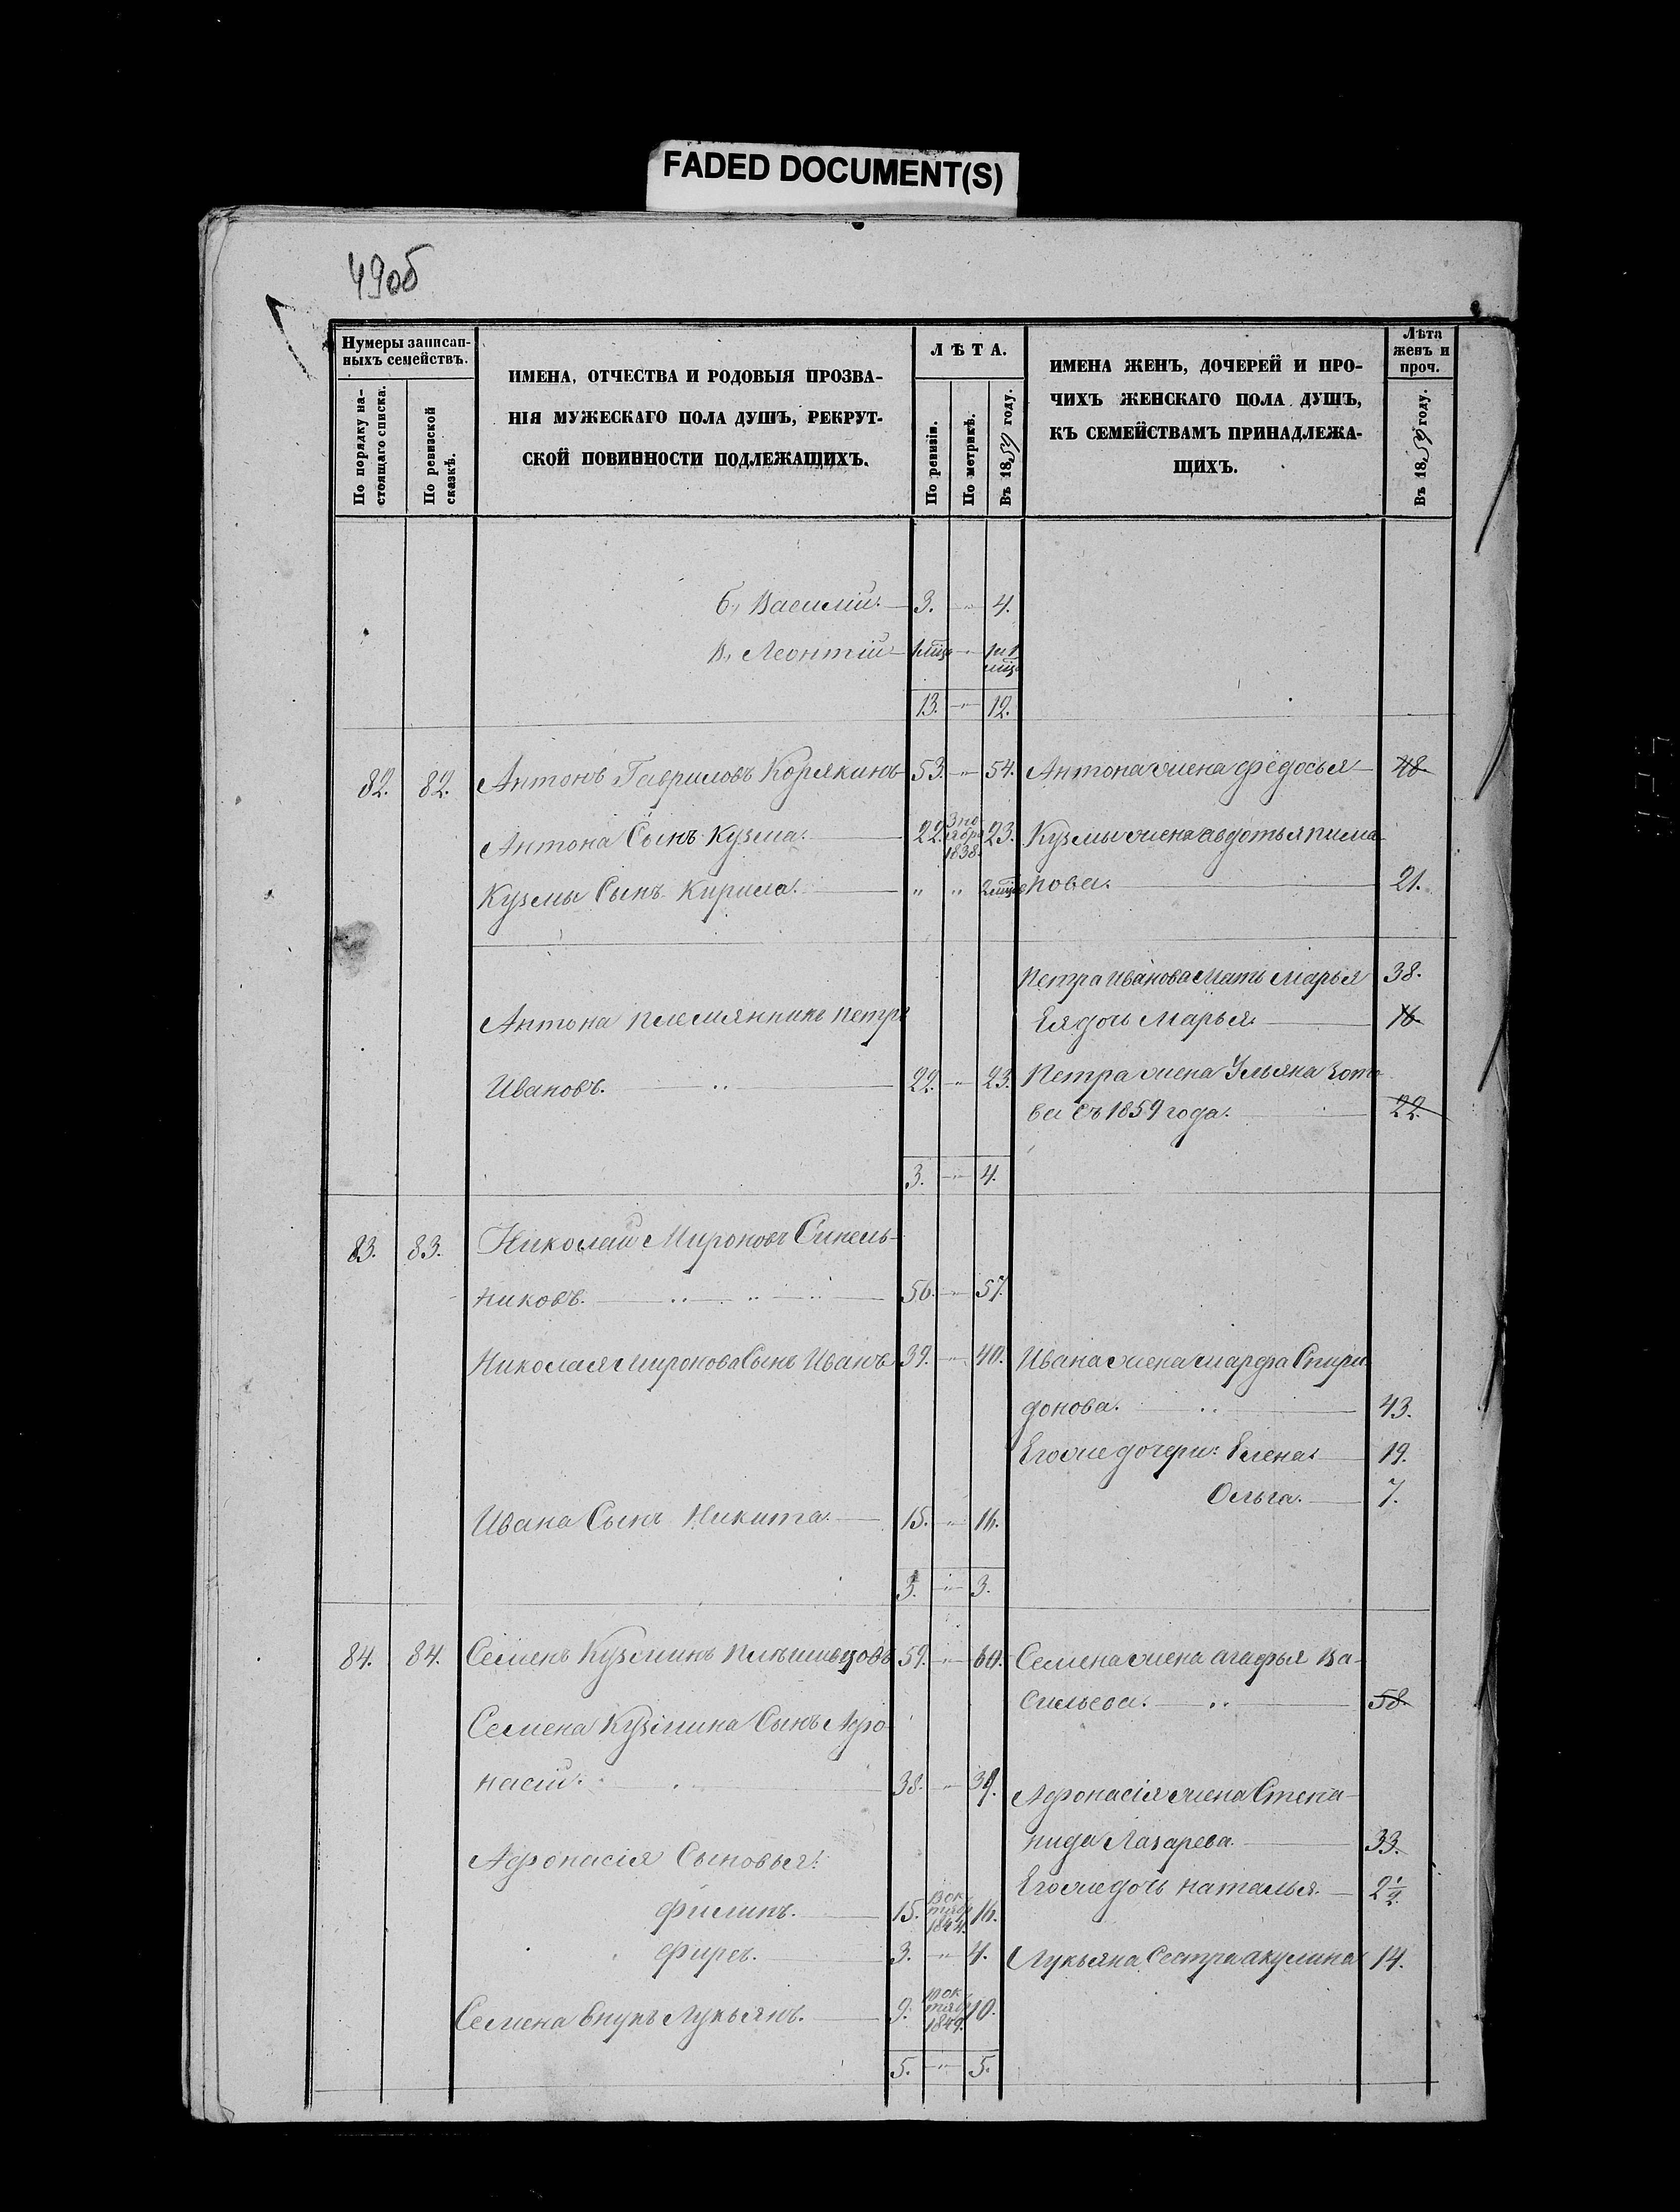 FADED DOCUMENT(S)
49об
Нумеры записан-
ныхъ семействъ.
По порядку на-
стоящаго списка.
По ревизской
сказкѣ.
ИМЕНА, ОТЧЕСТВА И РОДОВЫЯ ПРОЗВА-
НІЯ МУЖЕСКАГО ПОЛА ДУШЪ, РЕКРУТ-
СКОЙ ПОВИННОСТИ ПОДЛЕЖАЩИХЪ.
ЛѢТА.
По ревизіи.
По метрикѣ.
Въ 1859 году.
ИМЕНА ЖЕНЪ, ДОЧЕРЕЙ И ПРО-
ЧИХЪ ЖЕНСКАГО ПОЛА ДУШЪ,
КЪ СЕМЕЙСТВАМЪ ПРИНАДЛЕЖА-
ЩИХЪ.
Лѣта
женъ и
проч.
Въ 1859 году.
б, Василій. 3. " 4.
в, Леонтій
13. " 12.
82. 82. Антонъ Гавриловъ Корякинъ 53. " 54. Антона жена Федосья 48.
Антона Сынъ Кузма. 22. 3 но
ября
1838. 23. Кузмы жена авдотья пима-
Кузмы Сынъ Кирила. " " нова. 21.
Петра Иванова Мать Марья 38.
Антона племянникъ петръ
Ея дочь Марья. 16.
Ивановъ. 22. " 23. Петра жена Ульяна
ва съ 1859 года. 22.
3. " 4.
83. 83. Николай Мироновъ Синель-
никовъ. 56. " 57.
Николая Миронова Сынъ Иванъ 39. " 40. Ивана жена марфа Спири
донова. 43.
Его же дочери: Елена. 19.
Ольга. 7.
Ивана Сынъ Никита. 15. " 16.
3. " 3.
84. 84. Семенъ Кузминъ 59. " 60. Семена жена агафья Ва-
сильева. 58.
Семена Кузмина Сынъ Афо-
насій. 38. " 39.
Афонасія жена Степа-
нида Лазарева. 33.
Афонасія Сыновья:
Его же дочь наталья. 2½.
Филипъ. 15. 13 ок
тябр
1844. 16.
Фирсъ. 3. " 4. Лукьяна Сестра акулина 14.
Семена внукъ Лукьянъ. 9. 10 ок
тябр
1849. 10.
5. " 5.